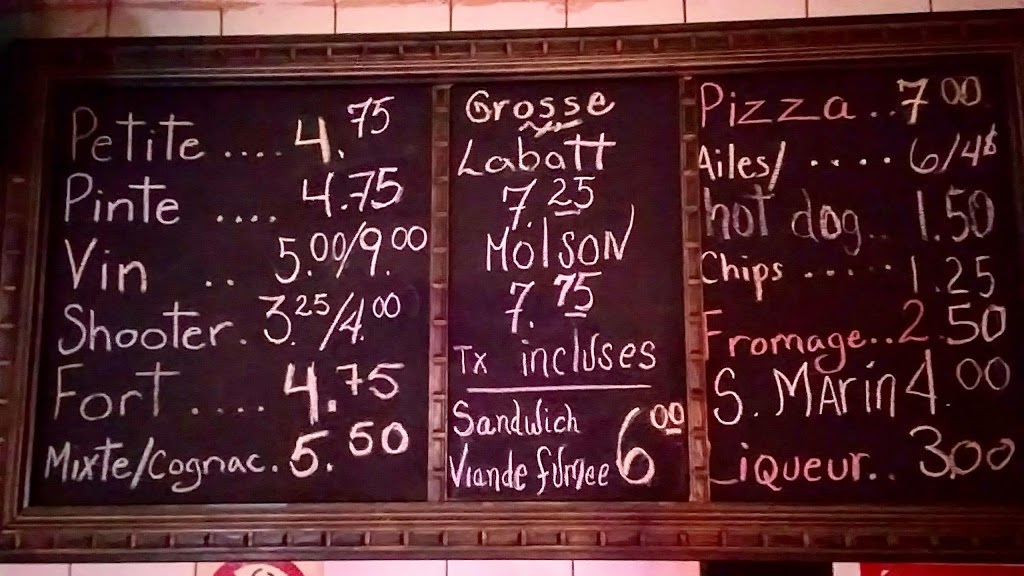 Petite .... 4.75
Pinte .... 4.75
Vin .. 5.00/9.00
Shooter. 3.25/4.00
Fort .... 4.75
Mixte/Cognac. 5.50
Grosse
Labatt
7.25
MOlSON
7.75
Tx incluses
Sandwich
Viande fumee 6 00
Pizza .. 7 00
Ailes/ .... 6/4$
hot dog.. 1.50
Chips ..... 1.25
Fromage..2.50
S. MArin 4.00
Liqueur.. 3.00